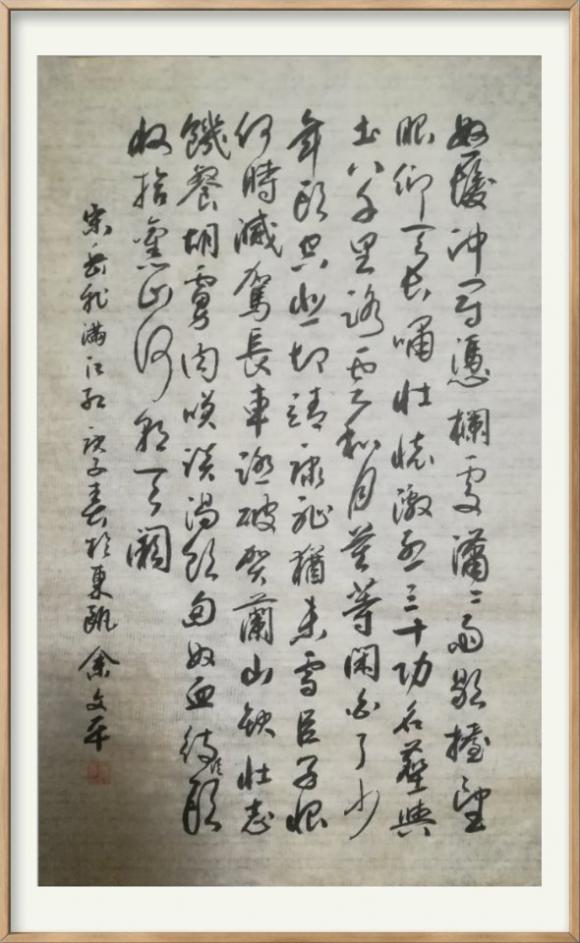 怒髮沖冠憑欄處瀟〻雨歇擡望
眼仰天長嘯壯懷激烈三十功名塵與
土八千里路雲和月莫等閑白了少
年頭空悲切靖康恥猶未雪臣子恨
何時滅駕長車踏破賀蘭山缺壯志
饑餐胡虜肉笑談渴飲匈奴血待從頭
收拾舊山河朝天闕
宋岳飛滿江紅庚子春於東甌余文平